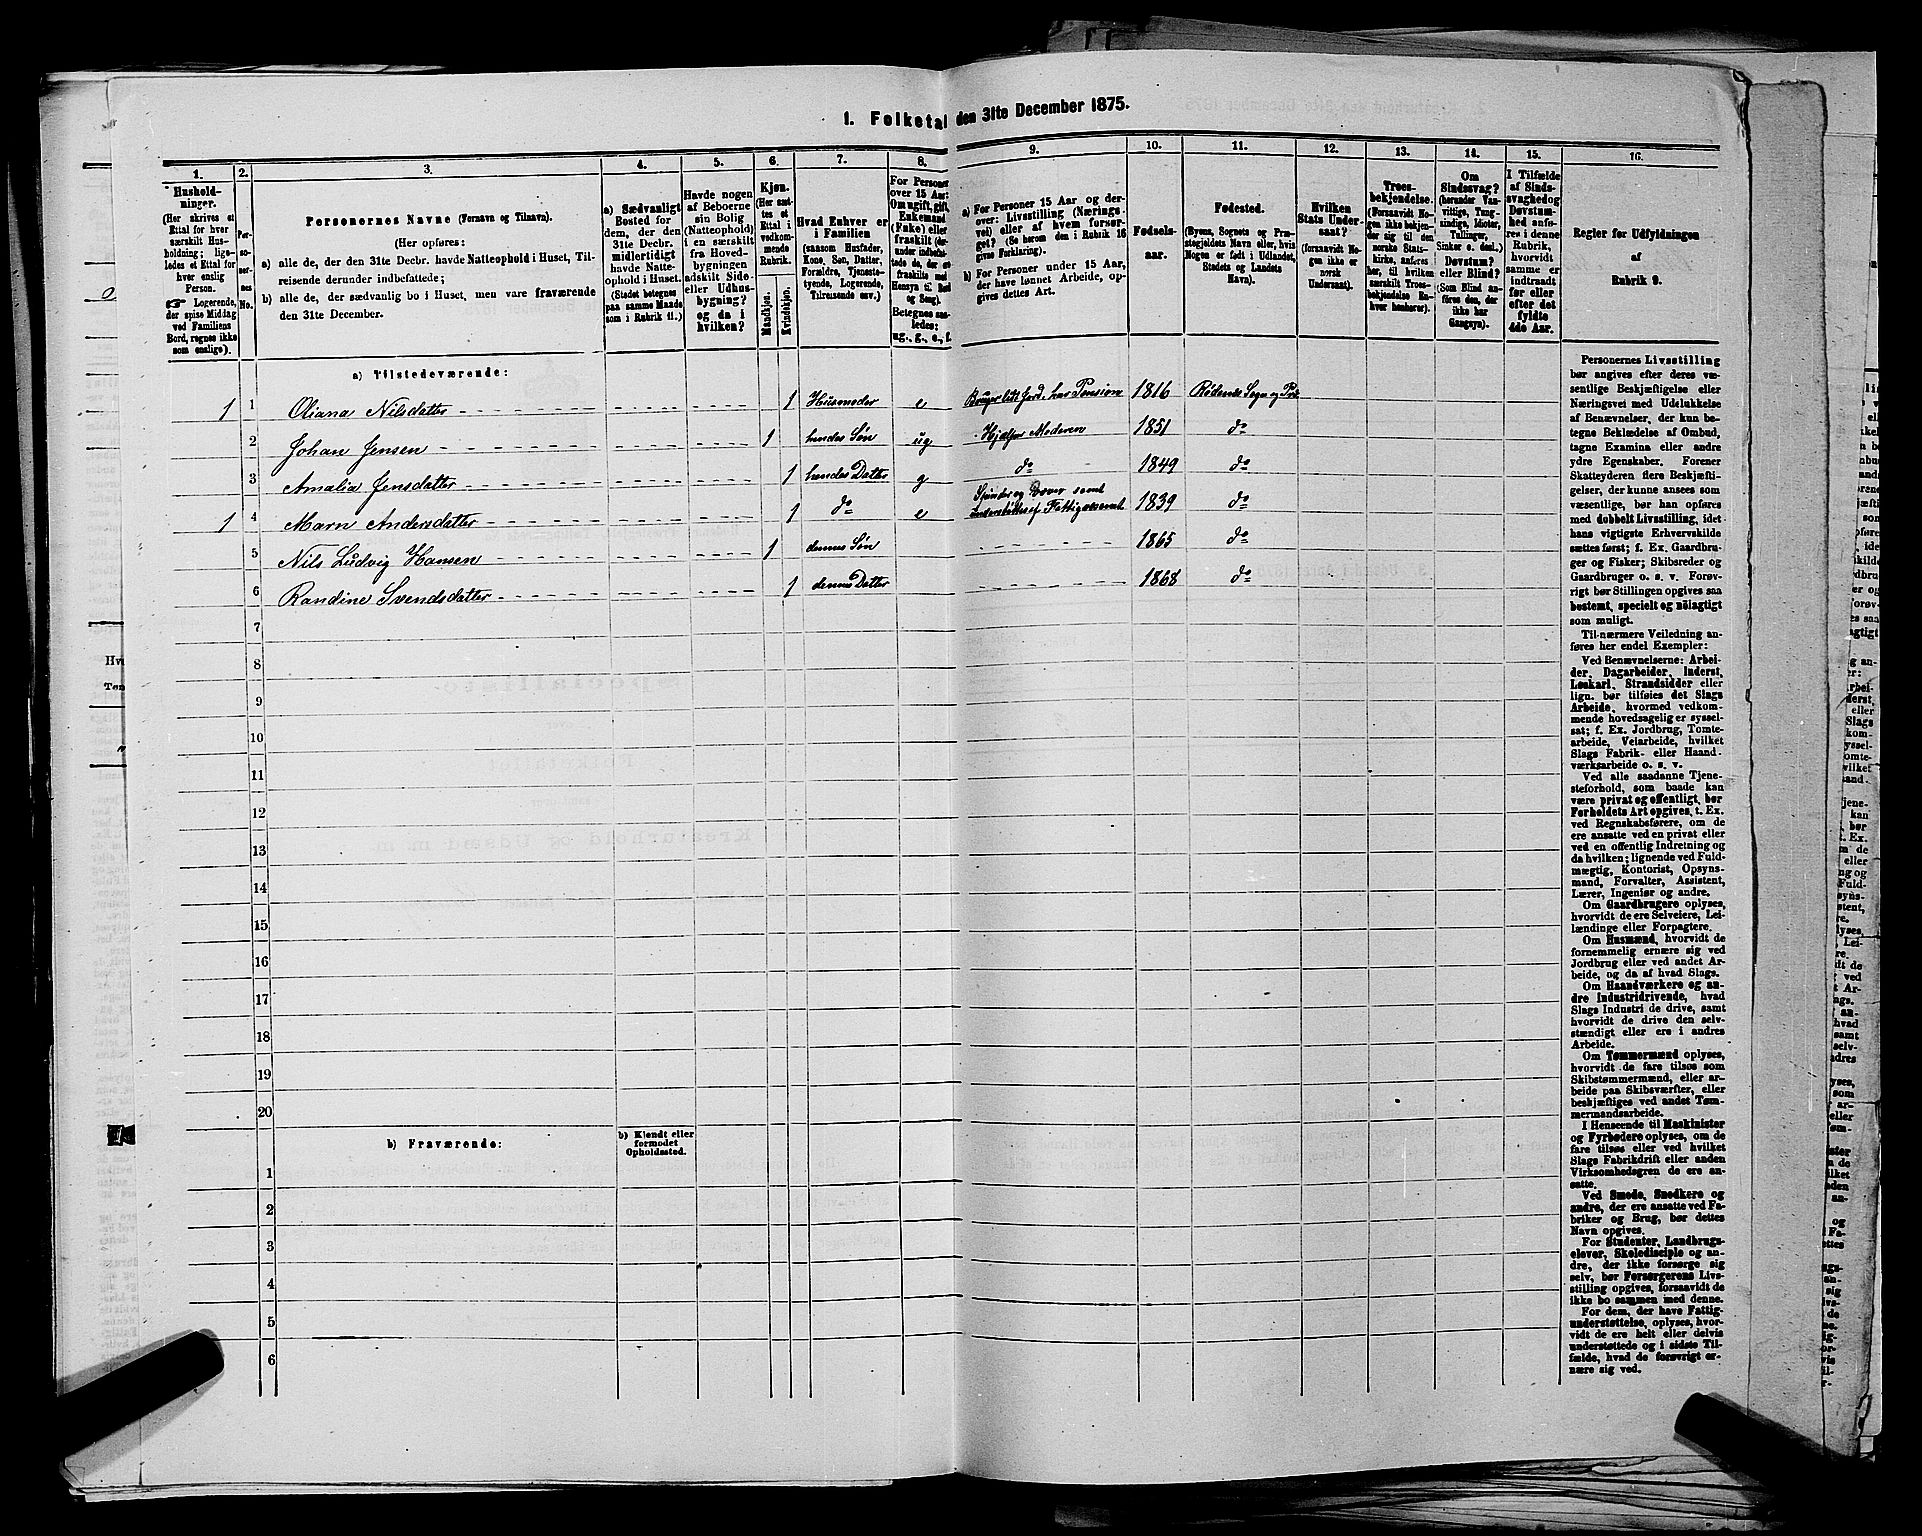 1. Folketal den 31te December 1875.
1. 2. 3. 4. 5. 6. 7. 8. 9. 10. 11. 12. 13. 14. 15. 16.
Hushold-
ninger.
(Her skrives et
Ettal for hver
særskilt Hus-
holdning; lige-
ledes et Ettal for
hver enslig
Person.
☞ Logerende,
der spise Middag
ved Familiens
Bord, regnes ikke
som enslige).
Per-
so-
ner-
nes
No.
Personernes Navne (Fornavn og Tilnavn).
(Her opføres:
a) alle de, der den 31te Decbr. havde Natteophold i Huset, Til-
reisende derunder indbefattede;
b) alle de, der sædvanlig bo i Huset, men vare fraværende
den 31te December.
a) Sædvanligt
Bosted for
dem, der den
31te Decbr.
midlertidigt
havde Natte-
ophold i Huset.
(Stedet betegnes
paa samme Maade
som i Rubrik 11.)
Havde nogen
af Beboerne
sin Bolig
(Natteophold)
i en særskilt
fra Hoved-
bygningen
adskilt Side-
eller Udhus-
bygning?
og da i
hvilken?
Kjøn.
(Her sæt-
tes et
Ettal i
vedkom-
mende
Rubrik.
Mandkjøn.
Kvindekjøn.
Hvad Enhver er
i Familien
(saasom Husfader,
Kone, Søn, Datter,
Forældre, Tjeneste-
tyende, Logerende,
Tilreisende osv.)
For Personer
over 15 Aar:
Om ugift, gift,
Enkemand
(Enke) eller
fraskilt (der-
under indbefat-
tede de, der ere
fraskilte med
Hensyn til Bord
og Seng).
Betegnes saa-
ledes:
ug., g., e., f.
a) For Personer 15 Aar og der-
over: Livsstilling (Nærings-
vei) eller af hvem forsør-
get? (Se herom den i Rubrik 16
givne Forklaring).
b) For Personer under 15 Aar,
der have lønnet Arbeide, op-
gives dettes Art.
Fødsels-
aar.
Fødested.
(Byens, Sognets og Præ-
stegjeldets Navn eller, hvis
Nogen er født i Udlandet,
Stedets og Landets
Navn).
Hvilken
Stats Under-
saat?
(forsaavidt No-
gen ikke er
norsk
Undersaat).
Troes-
bekjendelse.
(Forsaavidt No-
gen ikke bekjen-
der sig til den
norske Stats-
kirke, anføres
her, til hvilken
særskilt Troes-
bekjendelse En-
hver henhører).
Om
Sindssvag?
(herunder Van-
vittige, Tung-
sindige, Idioter,
Tullinger,
Sinker o. desl.).
Døvstum?
eller Blind?
(Som Blind an-
føres den, der
ikke har
Gangsyn).
I Tilfælde
af Sinds-
svaghed og
Døvstum-
hed anfø-
res i denne
Rubrik,
hvorvidt
samme er
indtraadt
før eller
efter det
fyldte
4de Aar.
Regler for Udfyldningen
af
Rubrik 9.
a) Tilstedeværende:
1 1 Oliana Nilsdatter 1 Husmoder e Bruger lidt Jord, har Pension 1816 Rødenes Sogn og Prk
2 Johan Jensen 1 hendes Søn ug Hjælper Moderen 1851 do
3 Amalia Jensdatter 1 hendes Datter g do 1849 do
1 4 Marn Andersdatter 1 do e Spinder og Væver samt understøttes af Fattigvæsenet 1839 do
5 Nils Ludvig Hansen 1 dennes Søn 1865 do
6 Randine Svendsdatter 1 dennes Datter 1868 do
7
8
9
10
11
12
13
14
15
16
17
18
19
20
b) Fraværende:
b) Kjendt eller
formodet
Opholdssted.
1
2
3
4
5
6
Personernes Livsstilling
bør angives efter deres væ-
sentlige Beskjæftigelse eller
Næringsvei med Udelukkelse
af Benævnelser, der kun be-
tegne Beklædelse af Ombud,
tagne Examina eller andre
ydre Egenskaber. Forener
Skatteyderen flere Beskjæfti-
gelser, der kunne ansees som
væsentlige, bør han opføres
med dobbelt Livsstilling, idet
hans vigtigste Erhvervskilde
sættes først; f. Ex. Gaardbru-
ger og Fisker; Skibsreder og
Gaardbruger o. s. v. Forøv-
rigt bør Stillingen opgives saa
bestemt, specielt og nöiagtigt
som muligt.
Til nærmere Veiledning an-
føres her endel Exempler:
Ved Benævnelserne: Arbei-
der, Dagarbeider, Inderst,
Løskarl, Strandsidder eller
lign. bør tilføies det Slags
Arbeide, hvormed vedkom-
mende hovedsagelig er syssel-
sat; f. Ex. Jordbrug, Tomte-
arbeide, Veiarbeide, hvilket
Slags Fabrik- eller Haand-
værksarbeide o. s. v.
Ved alle saadanne Tjene-
steforhold, som baade kan
være privat og offentligt, bør
Forholdets Art opgives, t. Ex.
ved Regnskabsførere, om de
ere ansatte ved en privat eller
ved en offentlig Indretning og
da hvilken; lignende ved Fuld-
mægtig, Kontorist, Opsyns-
mand, Forvalter, Assistent,
Lærer, Ingeniør og andre.
Om Gaardbrugere oplyses,
hvorvidt de ere Selveiere, Lei-
lændinge eller Forpagtere.
Om Husmænd, hvorvidt de
fornemmelig ernære sig ved
Jordbrug eller ved andet Ar-
beide, og da af hvad Slags.
Om Haandværkere og an-
dre Industridrivende, hvad
Slags Industri de drive, samt
hvorvidt de drive den selv-
stændigt eller ere i andres
Arbeide.
Om Tømmermænd oplyses,
hvorvidt de fare tilsøs som
Skibstømmermænd, eller ar-
beide paa Skibsværfter, eller
beskjæftiges ved andet Tøm-
mermandsarbeide.
I Henseende til Maskinister
og Fyrbødere oplyses, om de
fare tilsøs eller ved hvilket
Slags Fabrikdrift eller anden
Virksomhedsgren de ere an-
satte.
Ved Smede, Snedkere og
andre, der ere ansatte ved Fa-
briker og Brug, bør dettes
Navn opgives.
For Studenter, Landbrugs-
elever, Skoledisciple og an-
dre, der ikke forsørge sig
selv, bør Forsørgerens Livs-
stilling opgives, forsaavidt de
ikke bo sammen med denne.
For dem, der have Fattig-
understøttelse, oplyses, hvor-
vidt de ere helt eller delvis
understøttede og i sidste Til-
fælde, hvad de forøvrigt er-
nære sig ved.